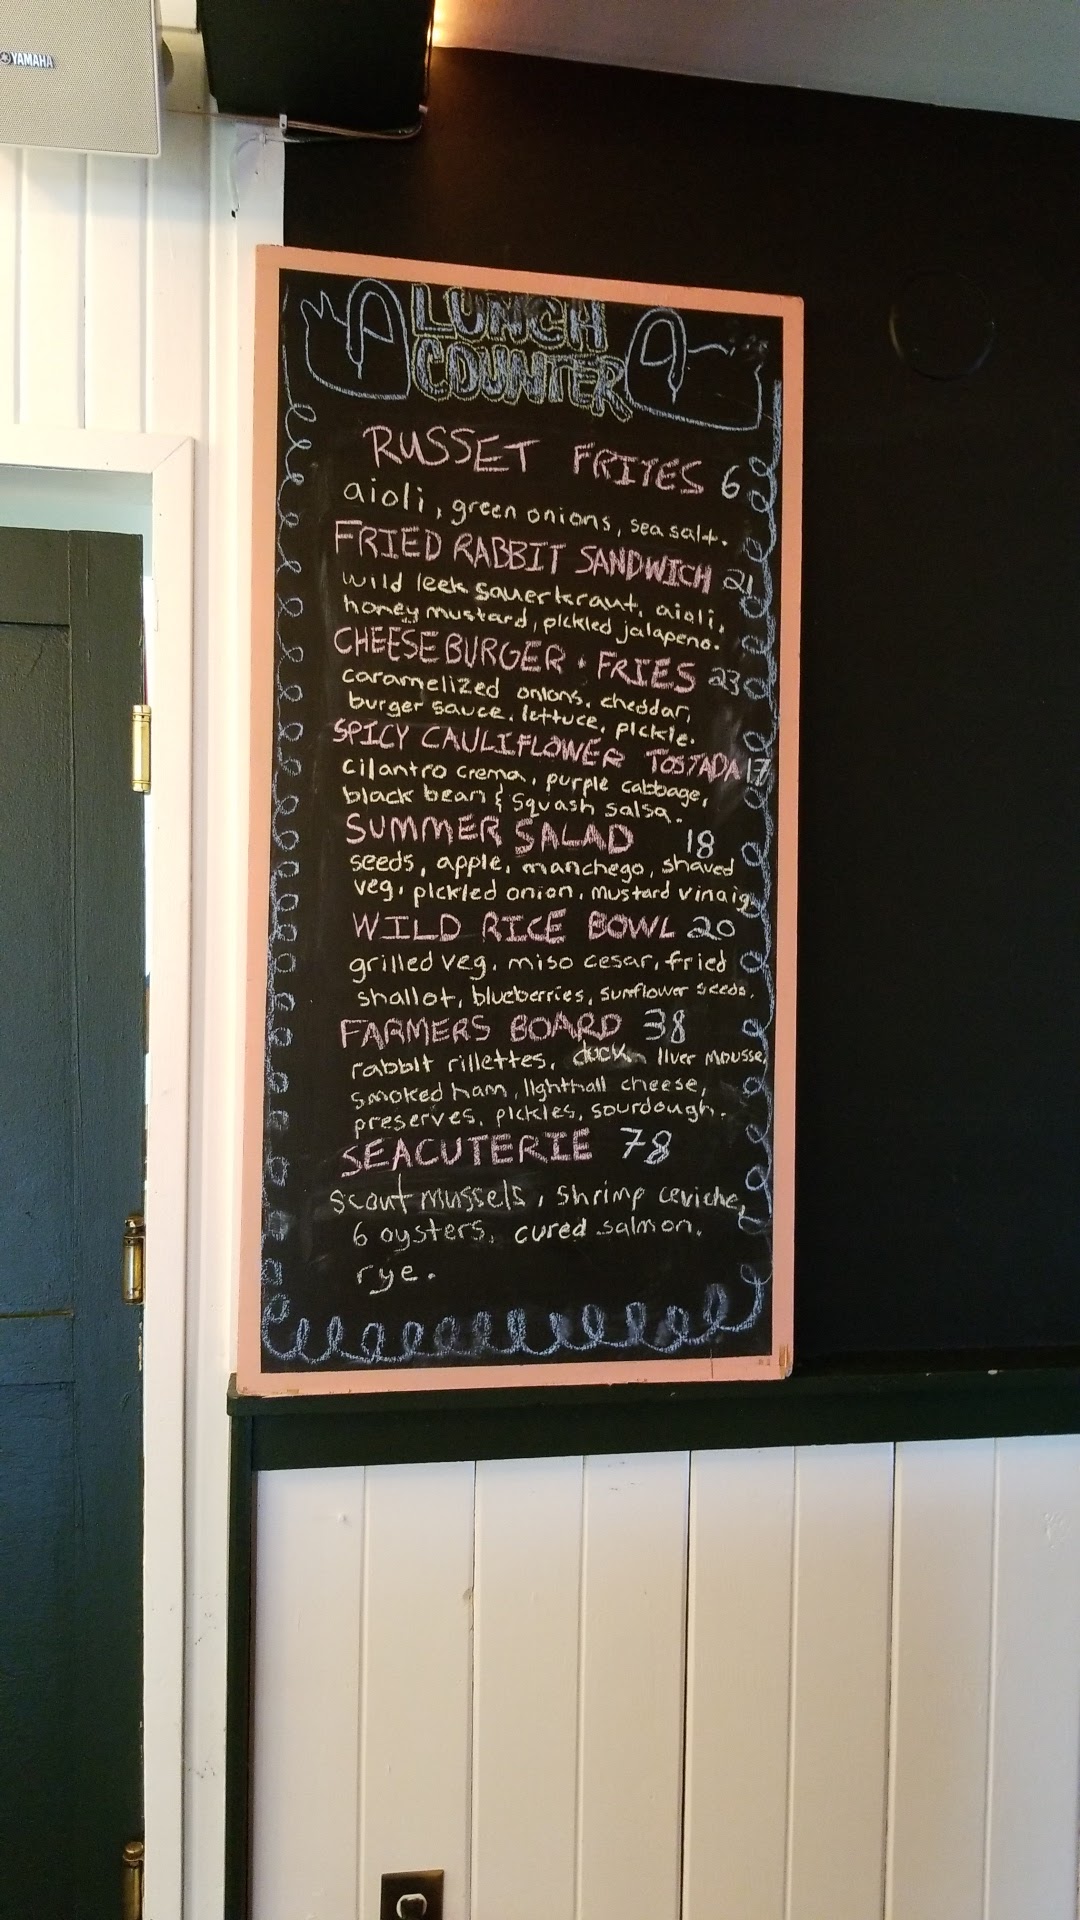 YAMAHA
LUNCH
COUNTER
RUSSET FRITES 6
aioli, green onions, sea salt.
FRIED RABBIT SANDWICH 21
wild leek sauerkraut, aioli,
honey mustard, pickled jalapeno.
CHEESEBURGER · FRIES 23
caramelized onions, cheddar,
burger sauce, lettuce, pickle.
SPICY CAULIFLOWER TOSTADA 17
cilantro crema, purple cabbage,
black bean & squash salsa.
SUMMER SALAD 18
seeds, apple, manchego, shaved
veg, pickled onion, mustard vinaig
WILD RICE BOWL 20
grilled veg, miso cesar, fried
shallot, blueberries, sunflower seeds.
FARMERS BOARD 38
rabbit rillettes, duck liver mousse,
smoked ham, lighthall cheese,
preserves, pickles, sourdough.
SEACUTERIE 78
scout mussels, shrimp ceviche,
6 oysters, cured salmon,
rye.